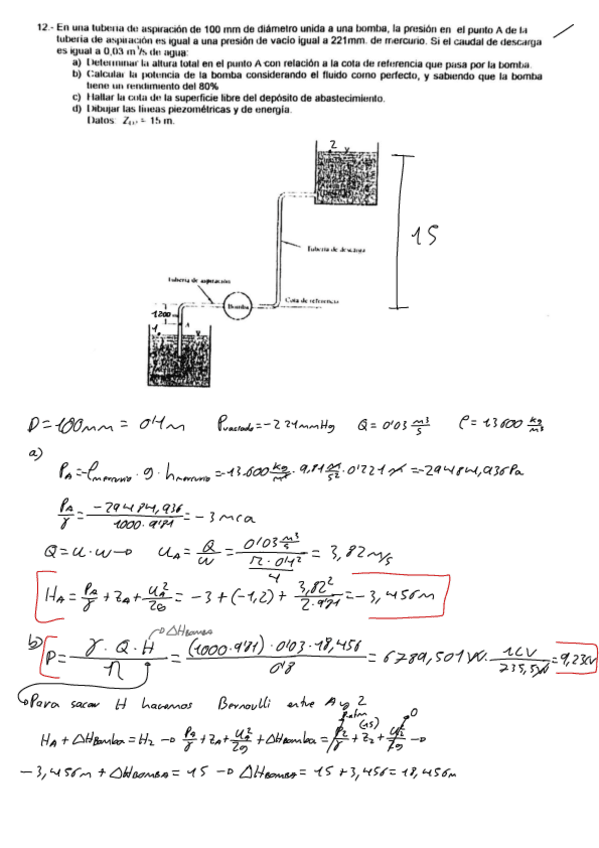 12.- En una tubería de aspiración de 100 mm de diámetro unida a una bomba, la presión en el punto A de la
tubería de aspiración es igual a una presión de vacío igual a 221mm. de mercurio. Si el caudal de descarga
es igual a 0,03 m³/s de agua:
a) Determinar la altura total en el punto A con relación a la cota de referencia que pasa por la bomba.
b) Calcular la potencia de la bomba considerando el fluido como perfecto, y sabiendo que la bomba
tiene un rendimiento del 80%
c) Hallar la cota de la superficie libre del depósito de abastecimiento.
d) Dibujar las líneas piezométricas y de energía.
Datos: Z = 15 m.
2
15
Tubería de descarga
Tubería de aspiración
Bomba
Cota de referencia
1200
A
1
D=100mm = 0'1m P vaciado=-221mmHg Q=0'03 m³/s ρ=13600 kg/m³
a)
P_A=-ρ mercurio · g · h mercurio=-13.600 kg/m³ · 9,81 m/s² · 0'221 m =-29484,936Pa
P_A/γ = -29484,936/1000·9'81 = -3mca
Q=u·w→ u_A = Q/w = 0'03 m³/s / (π·0'1²/4) = 3,82m/s
H_A = P_A/γ + z_A + u_A²/2g = -3+(-1,2)+ 3,82²/2·9'81 = -3,456m
b) P= γ·Q·H/η = (1000·9'81)·0'03·18,456/0'8 = 6789,501W · 1CV/735,5W = 9,23CV
→ΔHBOMBA
Para sacar H hacemos Bernoulli entre A y 2
Patm (15) 0
H_A + ΔHBomba = H_2 → P_A/γ + z_A + u_A²/2g + ΔHBomba = P_2/γ + z_2 + u_2²/2g →
-3,456m + ΔHBOMBA = 15 → ΔHBOMBA = 15 + 3,456 = 18,456m